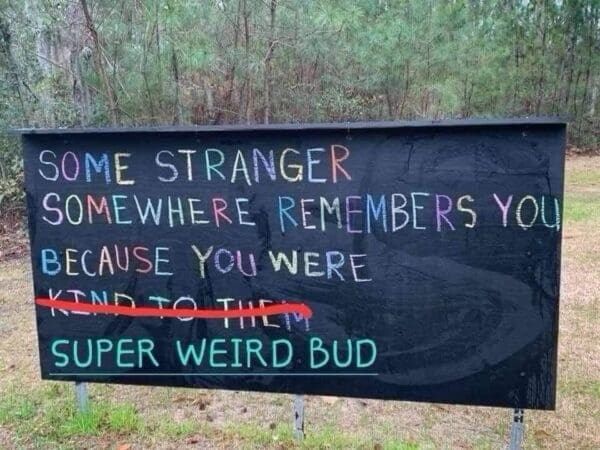 SOME STRANGER
SOMEWHERE REMEMBERS YOU
BECAUSE YOU WERE
KIND TO THEM
SUPER WEIRD BUD